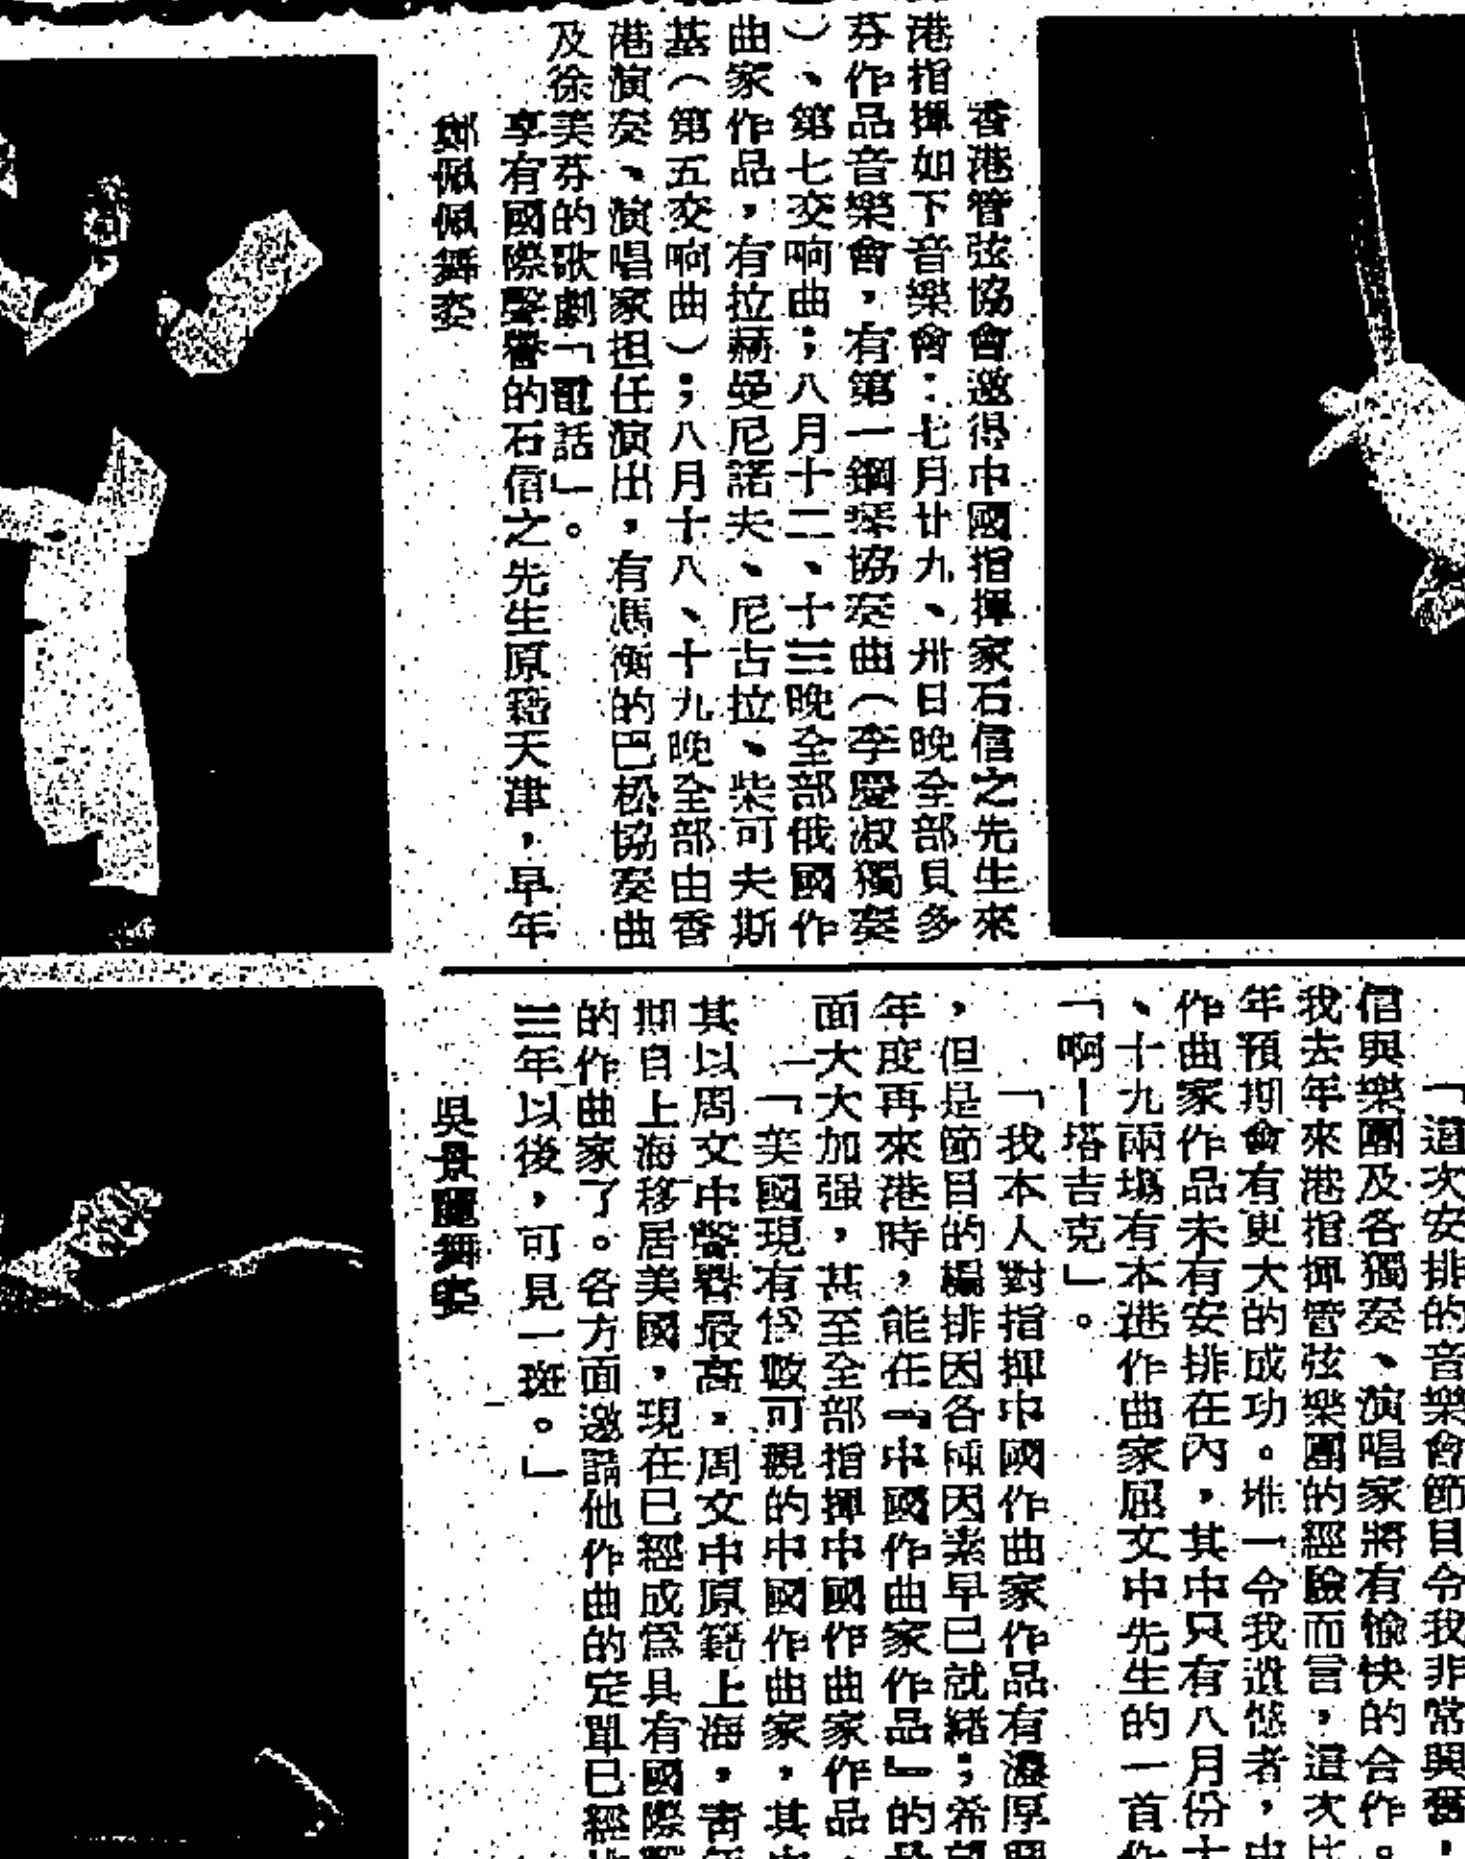 香港管弦協會邀得中國指揮家石信之先生來
港指揮如下音樂會：七月廿九、卅日晚全部貝多
芬作品音樂會，有第一鋼琴協奏曲（李慶淑獨奏
）、第七交响曲；八月十二、十三晚全部俄國作
曲家作品，有拉赫曼尼諾夫、尼古拉、柴可夫斯
基（第五交响曲）；八月十八、十九晚全部由香
港演奏、演唱家担任演出，有馮衡的巴松協奏曲
及徐美芬的歌劇「電話」。
享有國際聲譽的石信之先生原籍天津，早年
鄭佩佩舞姿
「這次安排的音樂會節目令我非常興奮，
信與樂團及各獨奏、演唱家將有愉快的合作。
我去年來港指揮管弦樂團的經驗而言，這次比
年預期會有更大的成功。唯一令我遺憾者，中
作曲家作品未有安排在內，其中只有八月份十
、十九兩場有本港作曲家屈文中先生的一首作
「啊！塔吉克」。
「我本人對指揮中國作曲家作品有濃厚興
，但是節目的編排因各種因素早已就緒；希望
年度再來港時，能在『中國作曲家作品』的
面大大加强，甚至全部指揮中國作曲家作品。
「美國現有為數可觀的中國作曲家，其中
其以周文中聲譽最高。周文中原籍上海，青年
期自上海移居美國，現在已經成為具有國際聲
的作曲家了。各方面邀請他作曲的定單已經
三年以後，可見一斑。」
吳景麗舞姿